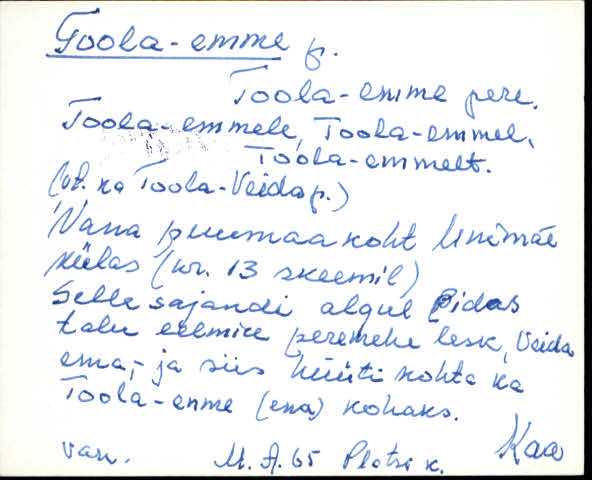 Toola-emme p.
Toola-emme pere.
Toola-emmele, Toola-emmel,
Toola-emmelt.
(vt. ka Toola-Veida p.)
Vana puumaa koht Linamäe
külas (nr. 13 skeemil)
Selle sajandi algul pidas
talu eelmise peremehe lesk, Veida
ema,- ja siis hüüti kohta ka
Toola-emme (ema) kohaks.
Kaa
van. M. A. 65 k.